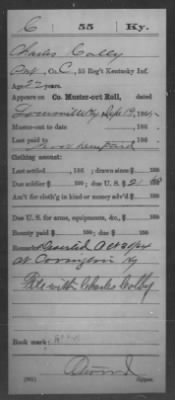 C | 55 | Ky.
Charles Colby
Pvt., Co. C, 55 Reg't Kentucky Inf.
Age 22 years.
Appears on Co. Muster-out Roll, dated
Louisville Ky Sept 19, 1865.
Muster-out to date , 186 .
Last paid to , 186 .
Never been paid
Clothing account:
Last settled , 186 ; drawn since $ 100
Due soldier $ 100; due U. S. $ 100
Am't for cloth'g in kind or money adv'd $ 100
Due U. S. for arms, equipments, &c., $ 100
Bounty paid $ 100; due $ 100
Remarks: Deserted Oct 30/64
at Covington Ky
File with Charles Colby
Book mark:
Copyist.